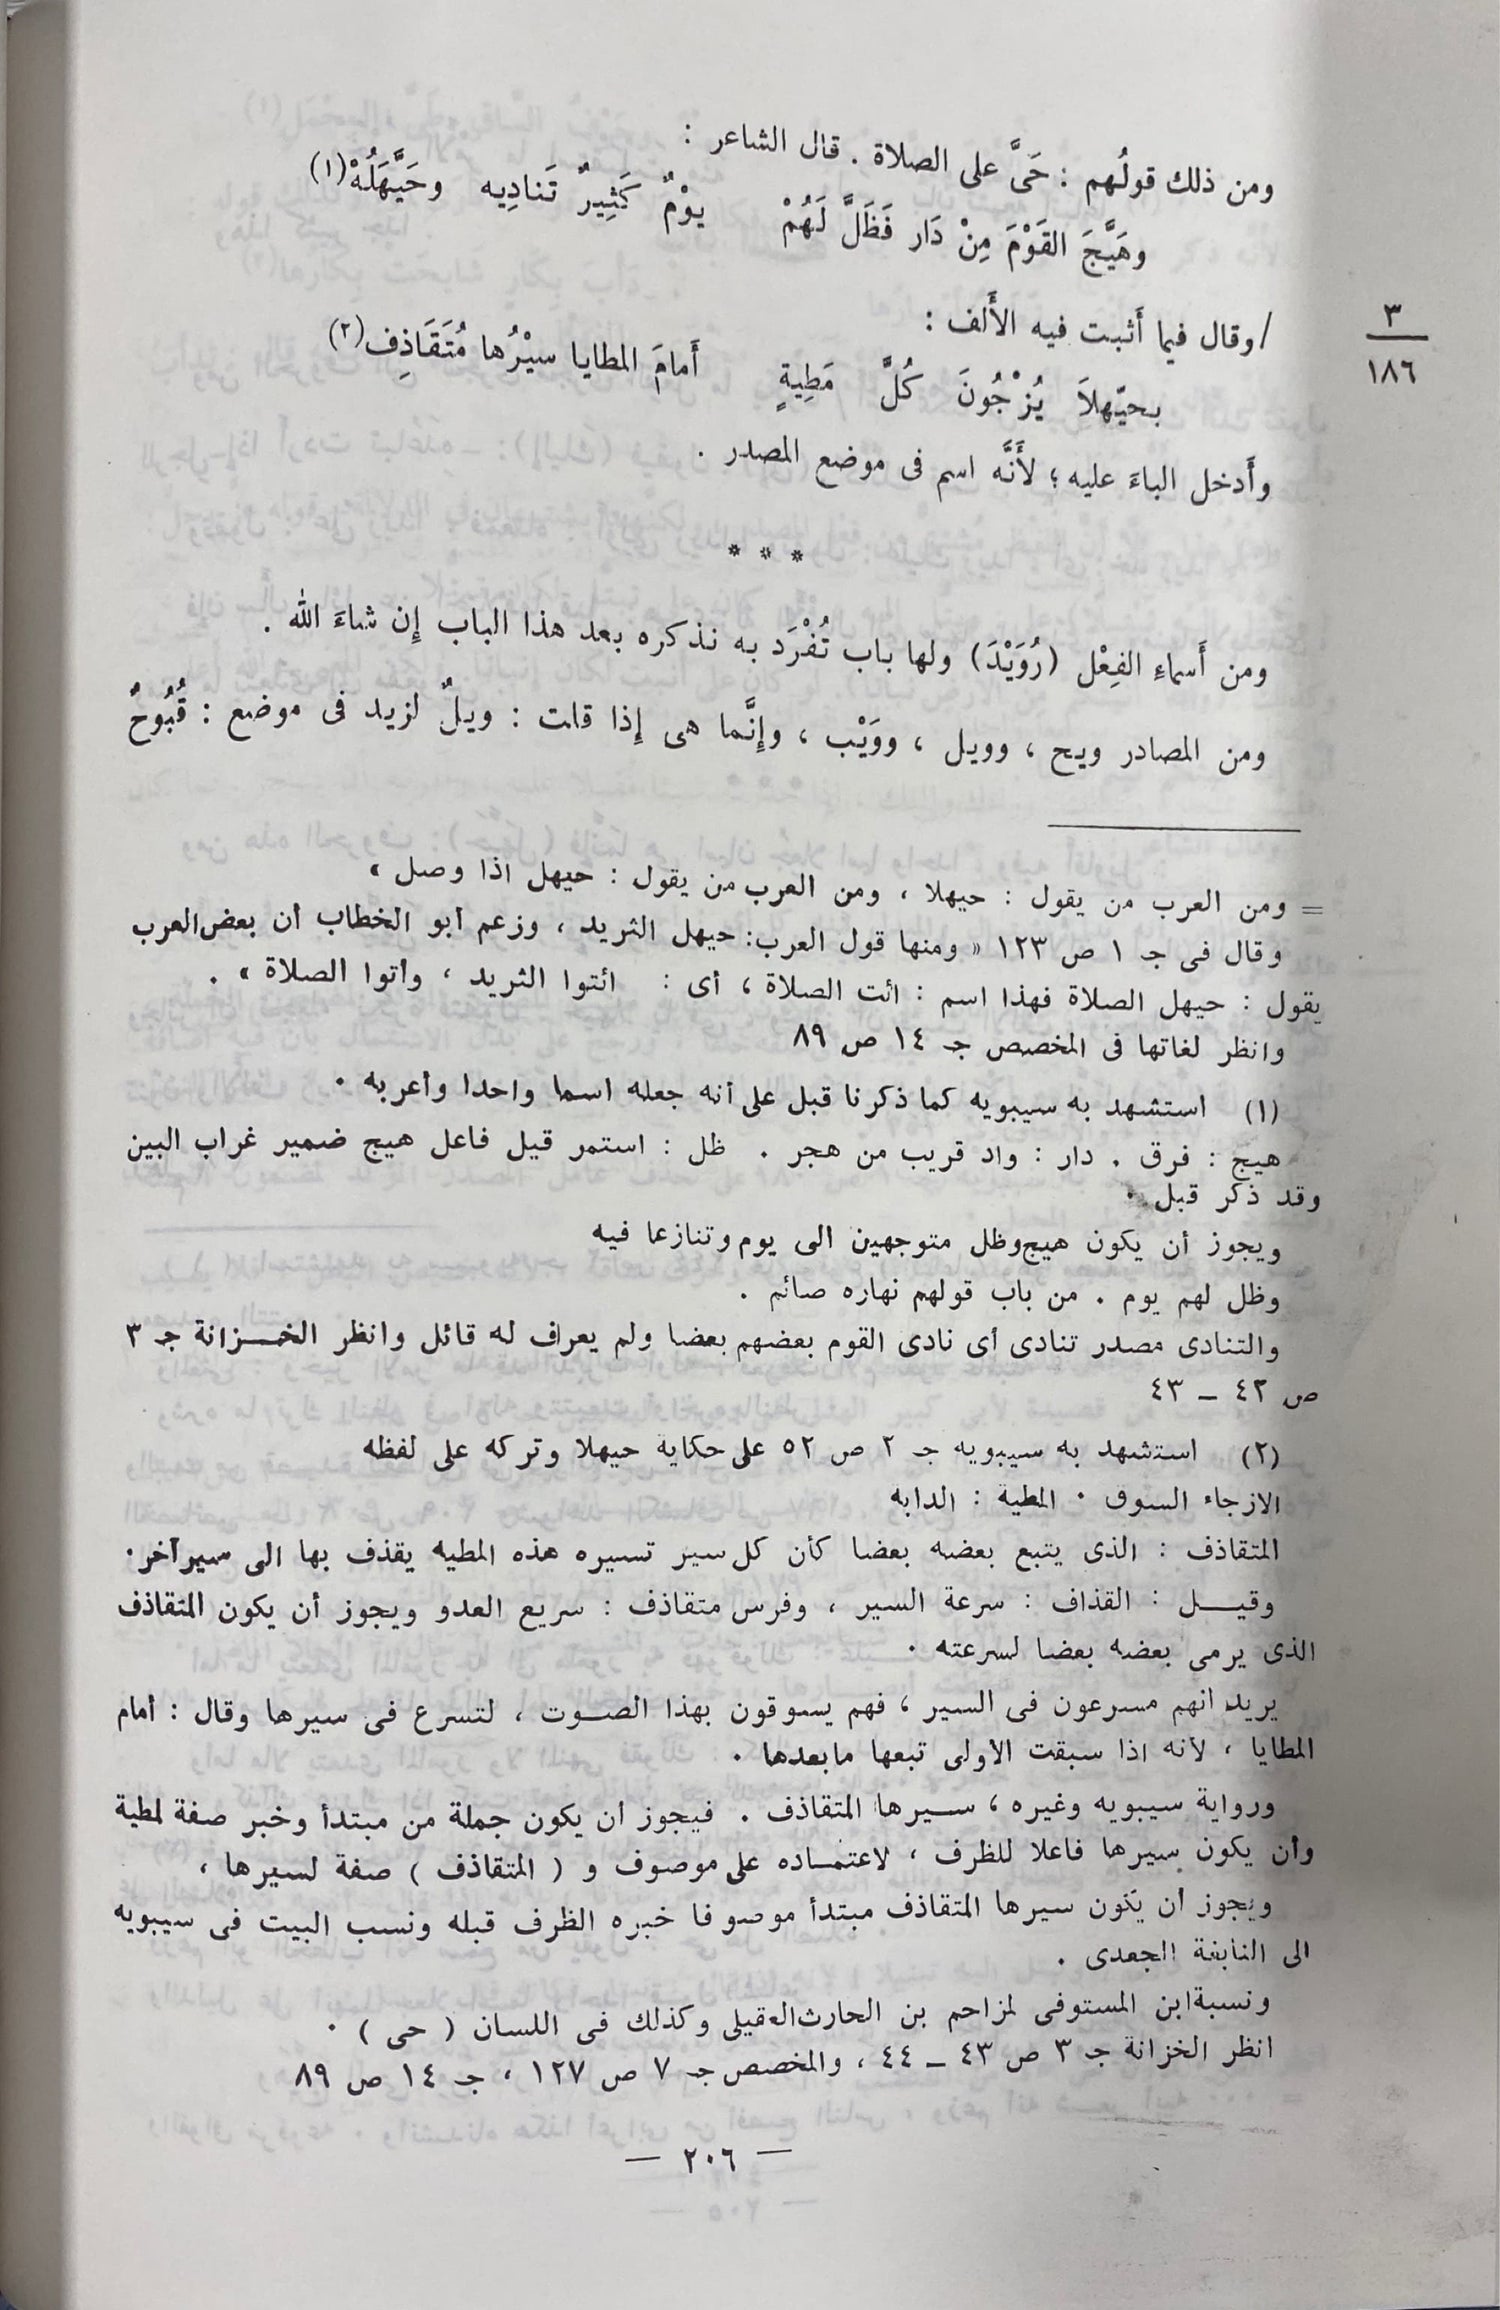 ومن ذلك قولُهم : حَىَّ على الصلاة . قال الشاعر :
وهَيَّجَ القَوْمَ مِنْ دَار فَظَلَّ لَهُمْ يوْمٌ كَثِيرٌ تَنادِيه وحَيَّهَلُهْ(١)
٣
١٨٦
/ وقال فيما أَثبت فيه الأَلف :
بحيّهلاَ يُزْجُونَ كُلَّ مَطِيةٍ أَمامَ المطايا سيْرُها مُتَقَاذِف(٢)
وأَدخل الباءَ عليه ؛ لأَنَّه اسم فى موضع المصدر .
* * *
ومن أَسماءِ الفِعْل (رُوَيْدَ) ولها باب تُفْرَد به نذكره بعد هذا الباب إِن شاءَ الله .
ومن المصادر ويح ، وويل ، ووَيْب ، وإِنَّما هى إِذا قلت : ويلٌ لزيد فى موضع : قُبُوحٌ
= ومن العرب من يقول : حيهلا ، ومن العرب من يقول : حيهل اذا وصل »
وقال فى جـ ١ ص ١٢٣ « ومنها قول العرب: حيهل الثريد ، وزعم أبو الخطاب أن بعض العرب
يقول : حيهل الصلاة فهذا اسم : ائت الصلاة ، أى : ائتوا الثريد ، وأتوا الصلاة » .
وانظر لغاتها فى المخصص جـ ١٤ ص ٨٩
(١) استشهد به سيبويه كما ذكرنا قبل على أنه جعله اسما واحدا وأعربه .
هيج : فرق . دار : واد قريب من هجر . ظل : استمر قيل فاعل هيج ضمير غراب البين
وقد ذكر قبل .
ويجوز أن يكون هيج وظل متوجهين الى يوم وتنازعا فيه
وظل لهم يوم . من باب قولهم نهاره صائم .
والتنادى مصدر تنادى أى نادى القوم بعضهم بعضا ولم يعراف له قائل وانظر الخـــزانة جـ ٣
ص ٤٢ – ٤٣
(٢) استشهد به سيبويه جـ ٢ ص ٥٢ على حكاية حيهلا وتركه على لفظه
الازجاء السوق . المطية : الدابه
المتقاذف : الذى يتبع بعضه بعضا كأن كل سير تسيره هذه المطيه يقذف بها الى سير آخر .
وقيـــل : القذاف : سرعة السير ، وفرس متقاذف : سريع العدو ويجوز أن يكون المتقاذف
الذى يرمى بعضه بعضا لسرعته .
يريد انهم مسرعون فى السير ، فهم يسوقون بهذا الصـوت ، لتسرع فى سيرها وقال : أمام
المطايا ، لأنه اذا سبقت الأولى تبعها مابعدها .
ورواية سيبويه وغيره ، سـيرها المتقاذف . فيجوز أن يكون جملة من مبتدأ وخبر صفة لمطية
وأن يكون سيرها فاعلا للظرف ، لاعتمـاده على موصوف و ( المتقاذف ) صفة لسيرها ،
ويجوز أن يكون سيرها المتقاذف مبتدأ موصوفا خبره الظرف قبله ونسب البيت فى سيبويه
الى النابغة الجعدى .
ونسبة ابن المستوفى لمزاحم بن الحارث العقيلى وكذلك فى اللسان ( حى ) .
انظر الخزانة جـ ٣ ص ٤٣ – ٤٤ ، والمخصص جـ ٧ ص ١٢٧ ، جـ ١٤ ص ٨٩
— ٢٠٦ —